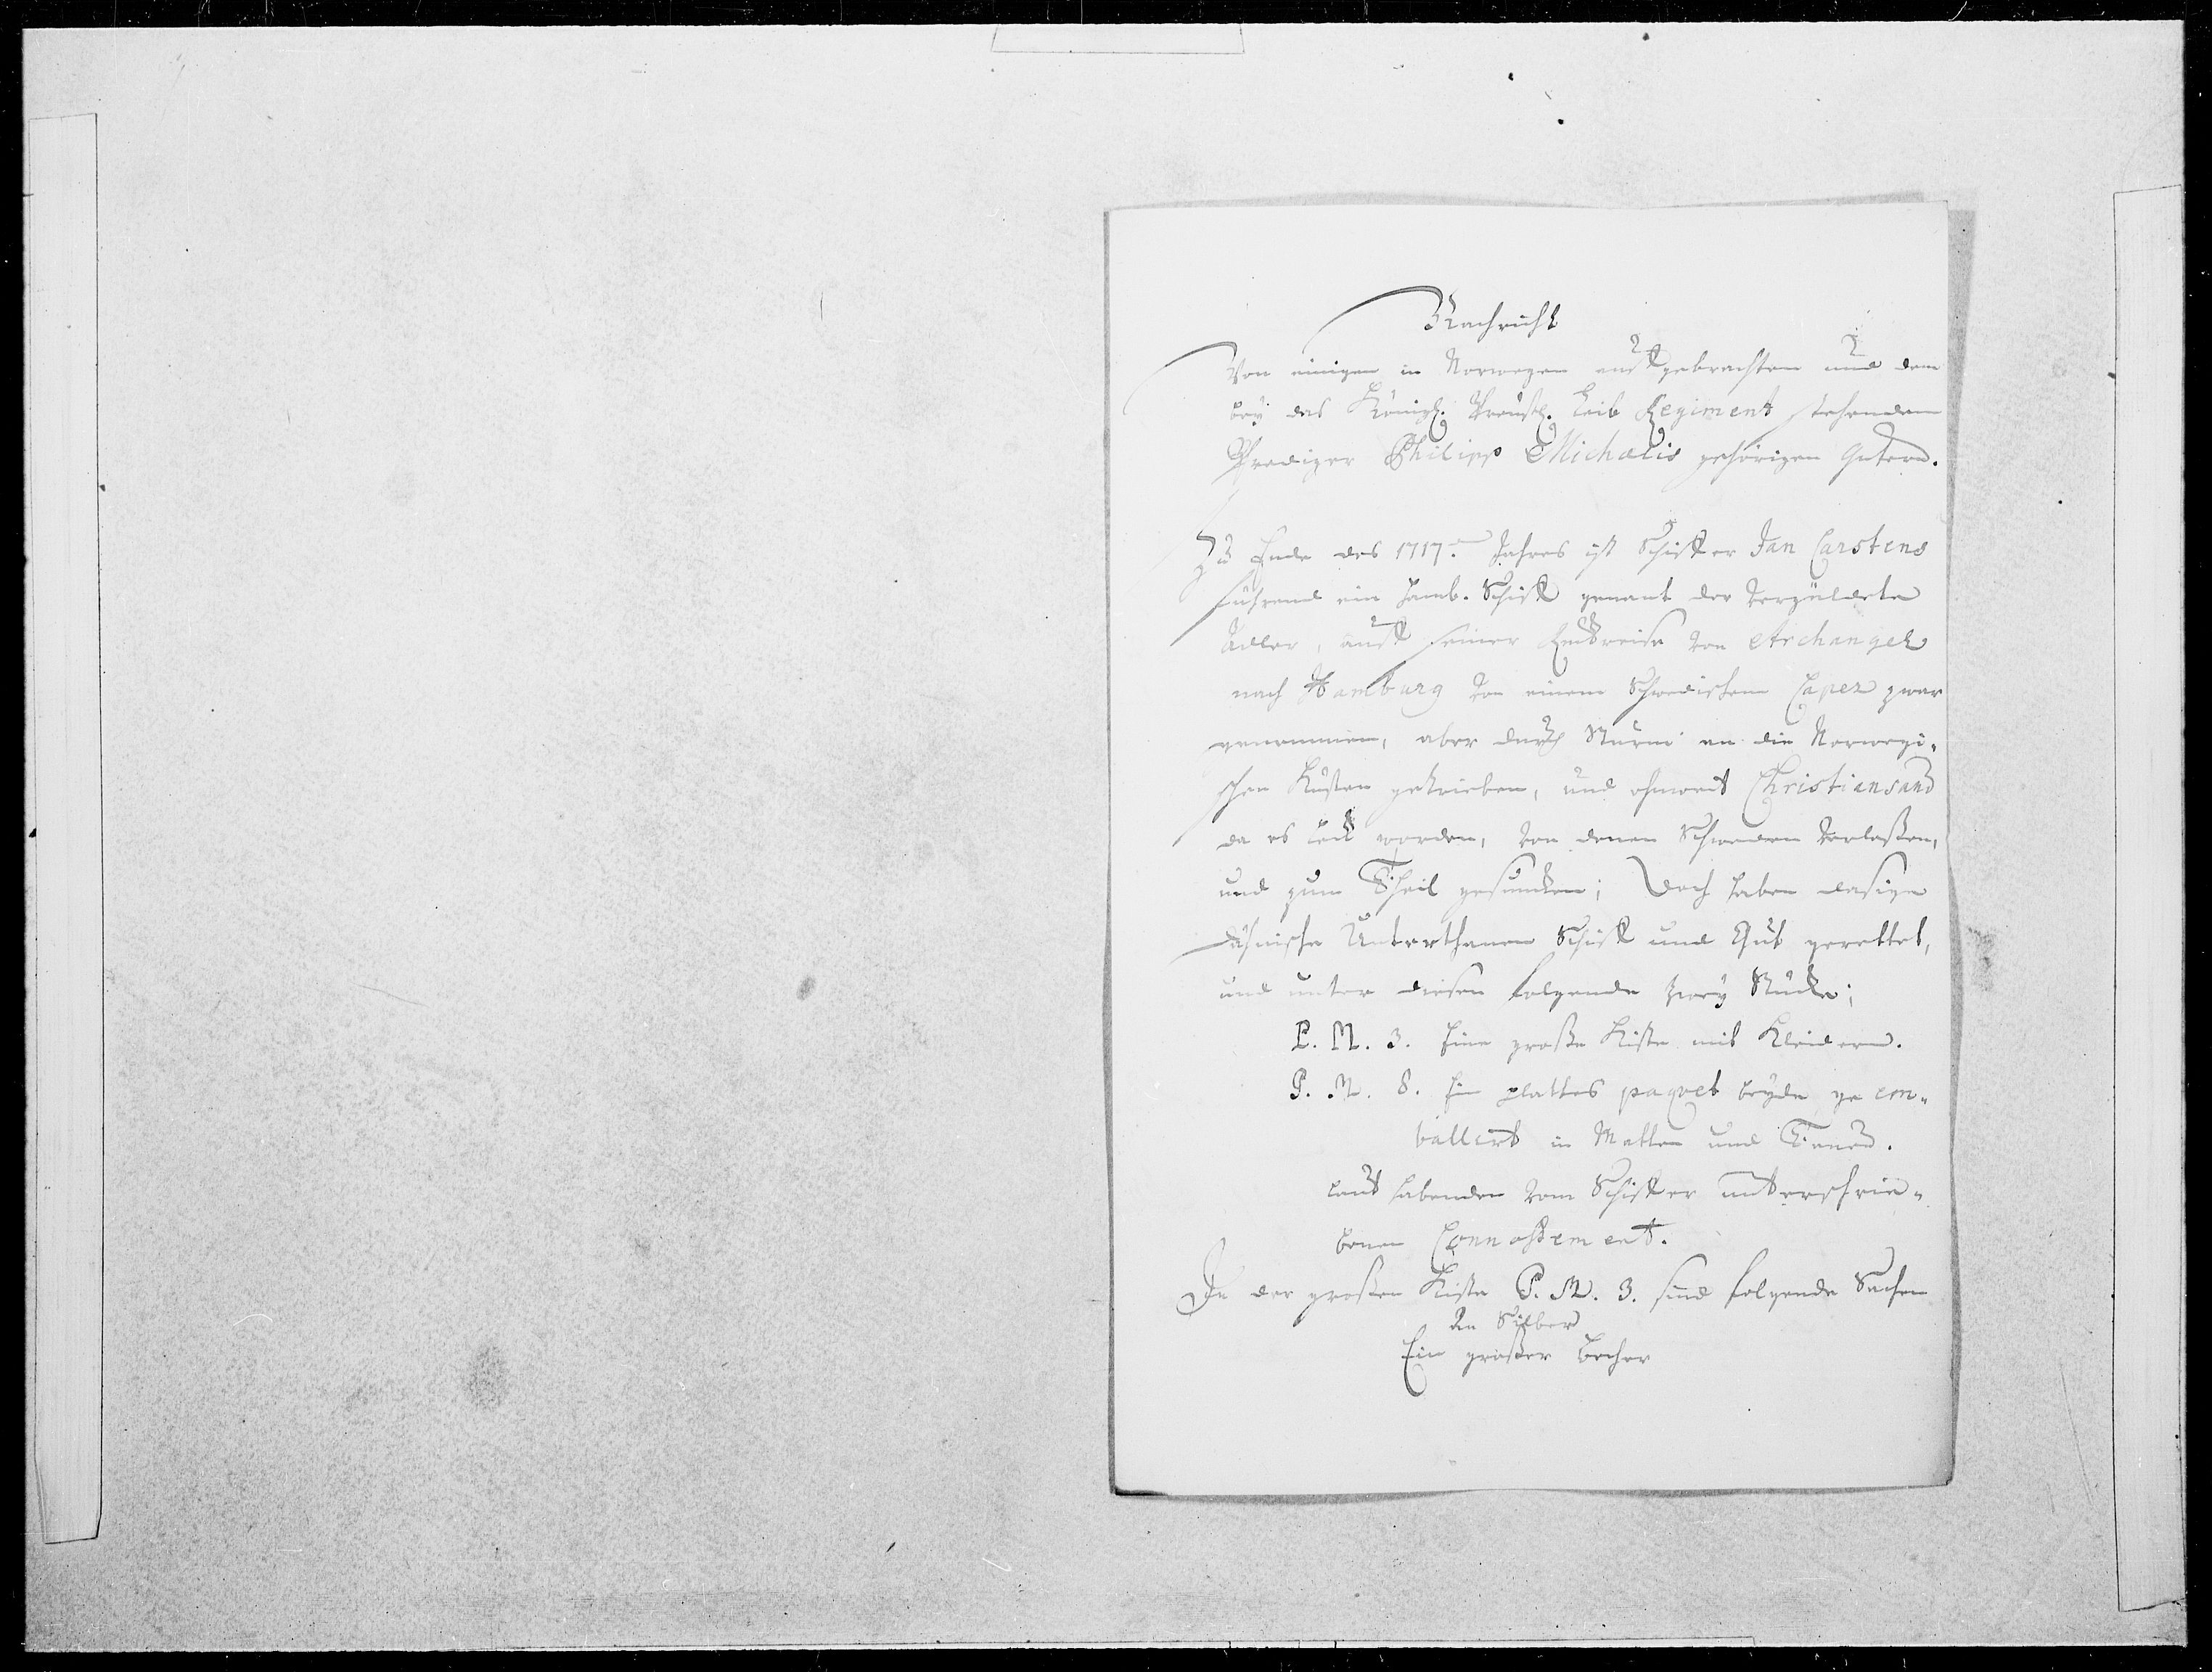 Nachricht
Von einigen in Norwegen auffgebrachten und dem
bey des Königl. Preußl. Leib Regiment stehenden
Prediger Philipp Michaelis gehörigen Gütern.
Zu Ende des 1717. Jahres ist Schiffer Jan Carstens
führend ein Hamb. Schiff genant der vergüldete
Adler, auff seiner Rückreise von Archangel
nach Hamburg von einem Schwedischen Caper zwar
genommen, aber durch Sturm an die Norwegi-
schen Küsten getrieben, und ohnweit Christiansand
da es leck worden, von denen Schweden verlaßen,
und zum Theil gesuncken; Doch haben dasige
Dähnische Unterthanen Schiff und Gut gerettet,
und unter diesen folgende zwey Stücke;
P. M. 3. Eine große Kiste mit Kleidern.
P. M. 8. Ein plattes paqvet beyde ge em-
ballirt in Matten und
laut habenden vom Schiffer unterschrie-
benen Connossement.
In der großen Kiste P. M. 3. sind folgende Sachen
An Silber
Ein großer Becher